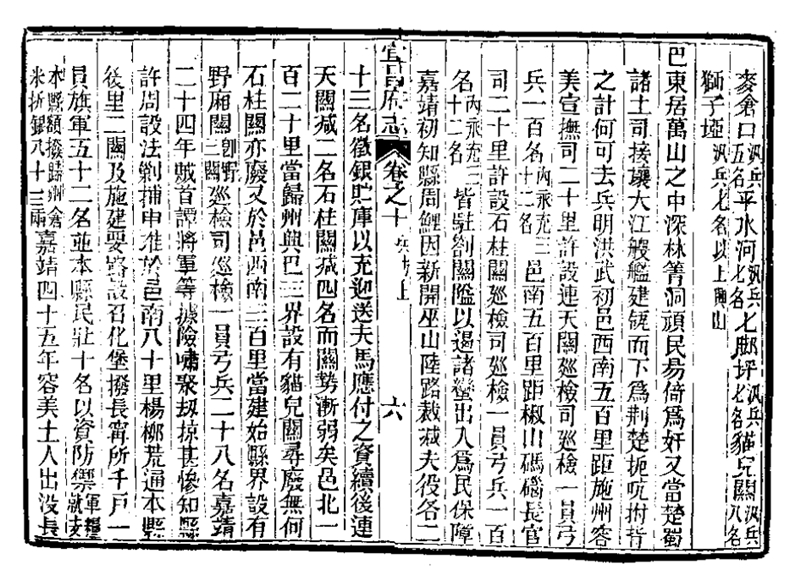 麥倉口汛兵五名平水河汛兵七名七郎坪汛兵七名貓兒關汛兵八名
獅子埡汛兵七名以上興山
巴東居萬山之中深林箐洞頑民易倚為奸又當楚蜀
諸土司接壤大江艘艦建瓴而下為荆楚扼吭拊背
之計何可去兵明洪武初邑西南五百里距施州容
美宣撫司二十里許設連天關巡檢司巡檢一員弓
兵一百名內永充三十二名邑南五百里距椒山碼磘長官
司二十里許設石柱關巡檢司巡檢一員弓兵一百
名內永充三十二名皆駐劄關隘以遏諸蠻出入為民保障
嘉靖初知縣周鯉因新開巫山陸路裁減夫役各二
宜昌府志 卷之十 兵防上 六
十三名徵銀貯庫以充迎送夫馬應付之資續後連
天關減二名石柱關減四名而關勢漸弱矣邑北一
百二十里當歸州興巴三界設有貓兒關尋廢無何
石柱關亦廢又於邑西南三百里當建始縣界設有
野廂關即野三關巡檢司巡檢一員弓兵二十八名嘉靖
二十四年賊首譚將軍等據險嘯聚刼掠甚慘知縣
許周設法剿捕申准於邑南八十里楊柳荒通本縣
後里二關及施建要路設召化堡撥長寧所千戶一
員旗軍五十二名並本縣民壯十名以資防禦軍糧就支
本縣額撥歸州倉米折銀八十三兩嘉靖四十五年容美土人出没長